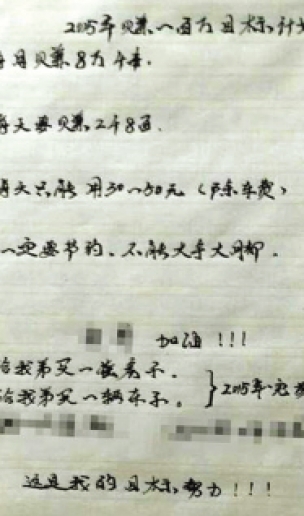 2015年赚一百万目标计划
每月赚8万千本.
每天要赚2千8百.
每天只能用30~50元（除车费）
一定要节约.不能大手大脚.
加油!!!
给我弟买一套房子.
给我弟买一辆车子。
}2015年一定
这是我的目标努力!!!